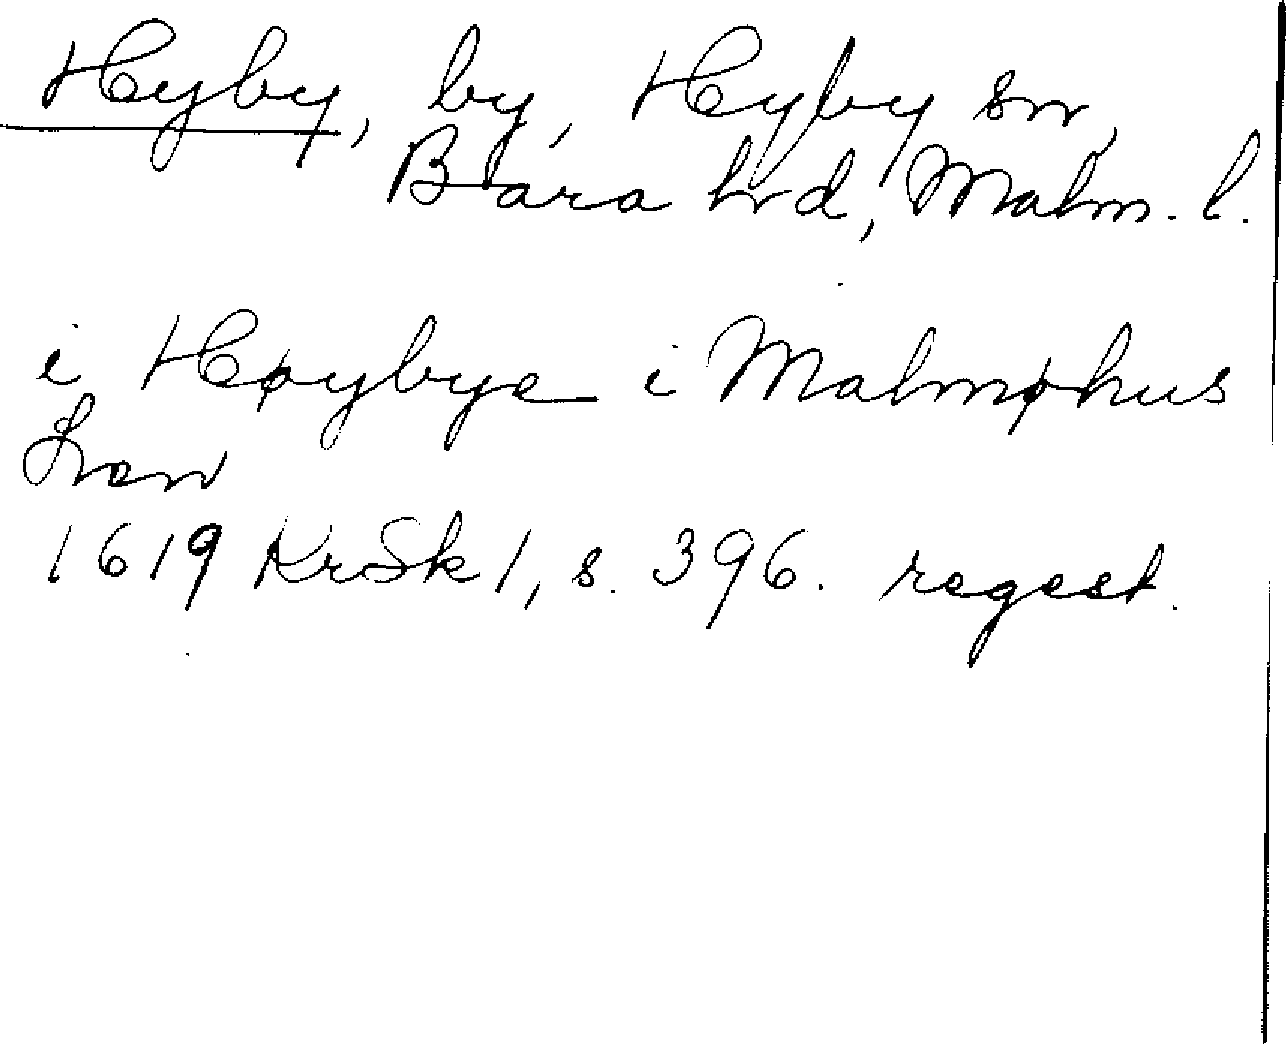 Hyby, by, Hyby sn,
Bara hrd, Malm. l.
i Høybye i Malmøhus
Lren
1619 KrSk 1, s. 396. regest.